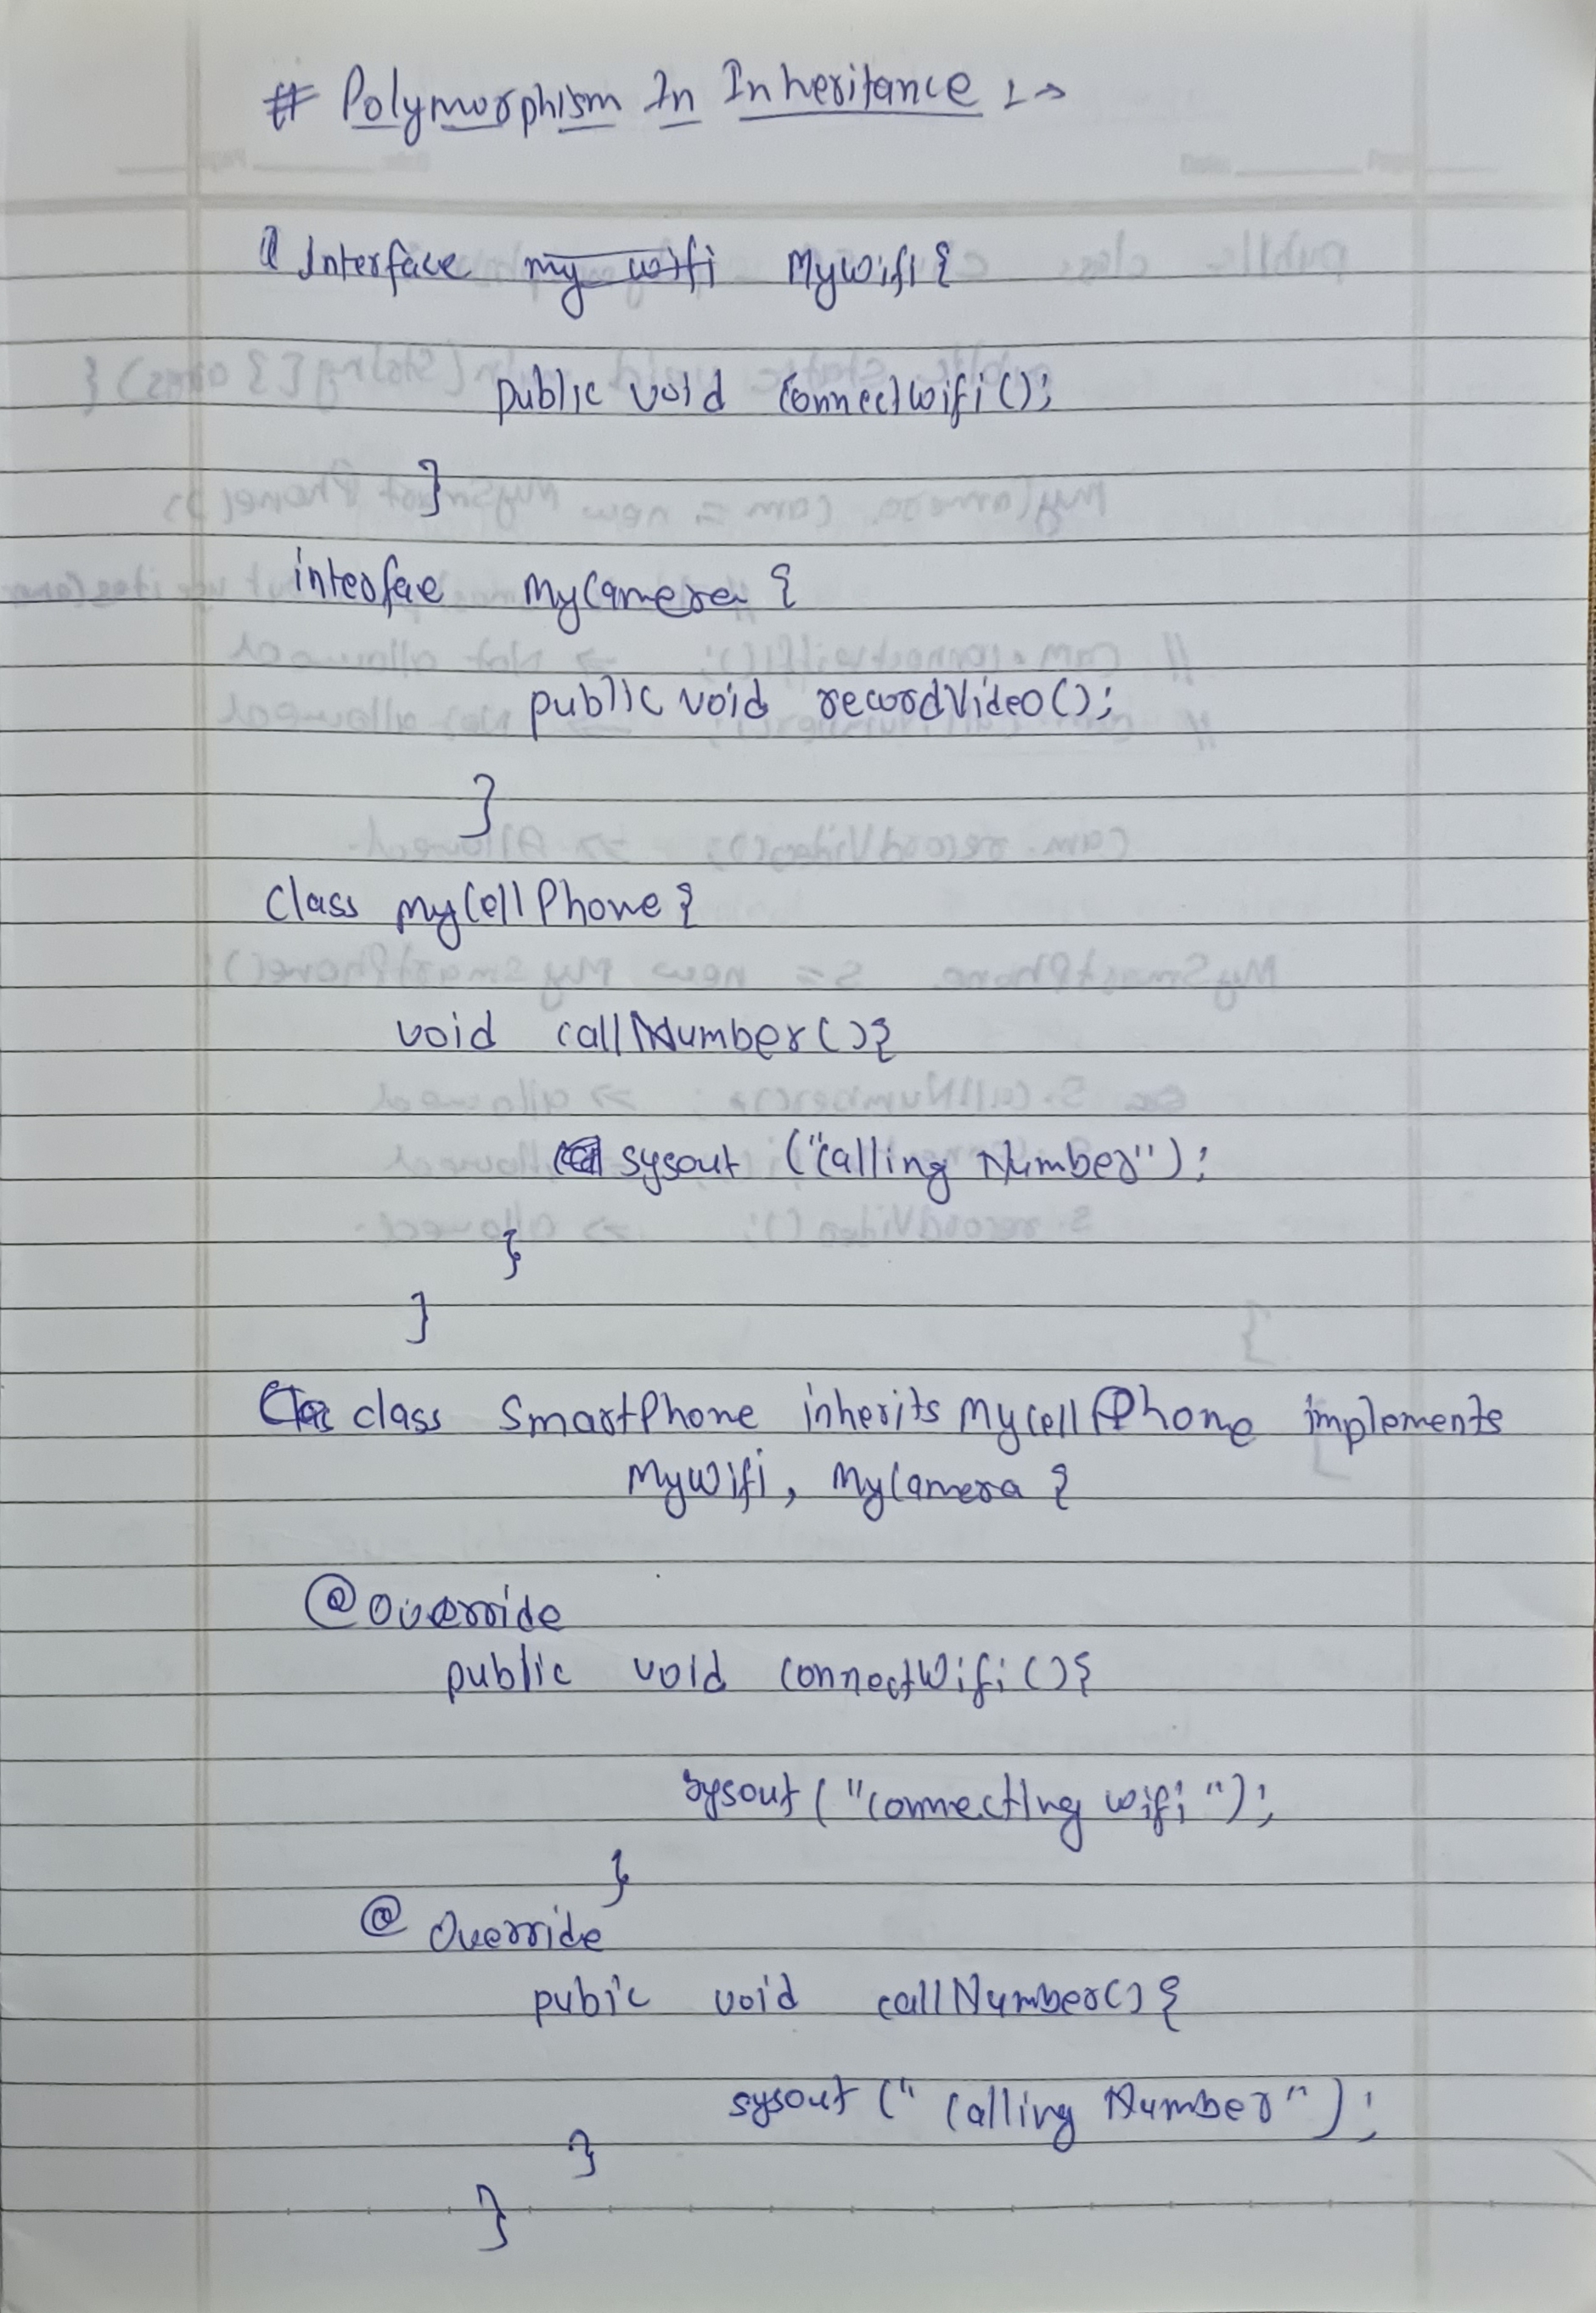 # Polymorphism In Inheritance :->
Interface my wifi MyWifi{
public void connectWifi();
}
interfae MyCamera {
public void recordVideo();
}
class MyCellPhone{
void callNumber(){
sysout ("calling Number");
}
}
class SmartPhone inherits MycellPhone implements
MyWifi, MyCamera {
@Override
public void connectWifi(){
sysout ("connecting wifi");
}
@ Override
pubic void callNumber() {
sysout (" Calling Number");
}
}